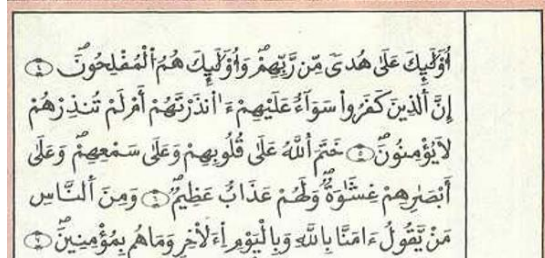 أُوْلَٰٓئِكَ عَلَىٰ هُدىٗ مِّن رَّبِّهِمْۖ وَأُوْلَٰٓئِكَ هُمُ اُ۬لْمُفْلِحُونَۖ
إِنَّ اَ۬لذِينَ كَفَرُواْ سَوَآءٌ عَلَيْهِمْ ءَآنذَرْتَهُمْ أَمْ لَمْ تُنذِرْهُمْ
لَا يُؤْمِنُونَۖ خَتَمَ اَ۬للَّهُ عَلَىٰ قُلُوبِهِمْ وَعَلَىٰ سَمْعِهِمْۖ وَعَلَىٰ
أَبْصَٰرِهِمْ غِشَٰوَةٞۖ وَلَهُمْ عَذَابٌ عَظِيمٞۖ وَمِنَ اَ۬لنَّاسِ
مَنْ يَّقُولُ ءَامَنَّا بِاللَّهِ وَبِالْيَوْمِ اِ۬ءَلَاخِرِ وَمَا هُم بِمُؤْمِنِينَۖ